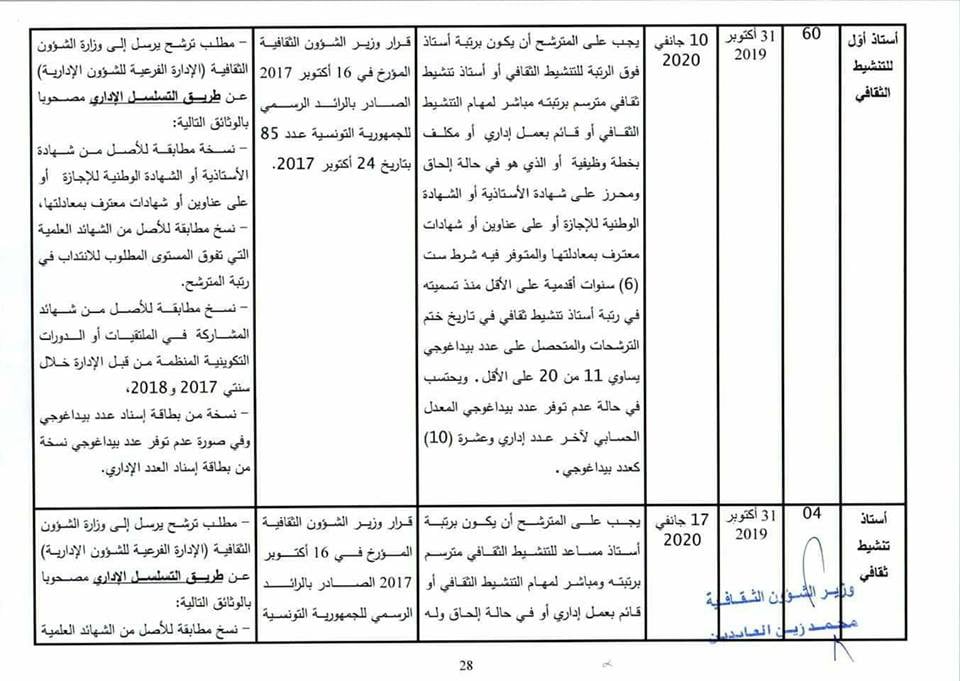 أستاذ أوّل
للتنشيط
الثقافي
60
31 أكتوبر
2019
10 جانفي
2020
يجب على المترشح أن يكون برتبة أستاذ
فوق الرتبة للتنشيط الثقافي أو أستاذ تنشيط
ثقافي مترسم برتبته مباشر لمهام التنشيط
الثقافي أو قائم بعمل إداري أو مكلف
بخطة وظيفية أو الذي هو في حالة إلحاق
ومحرز على شهادة الأستاذية أو الشهادة
الوطنية للإجازة أو على عناوين أو شهادات
معترف بمعادلتها والمتوفر فيه شرط ست
(6) سنوات أقدمية على الأقل منذ تسميته
في رتبة أستاذ تنشيط ثقافي في تاريخ ختم
الترشحات والمتحصل على عدد بيداغوجي
يساوي 11 من 20 على الأقل. ويحتسب
في حالة عدم توفر عدد بيداغوجي المعدل
الحسابي لآخر عدد إداري وعشرة (10)
كعدد بيداغوجي.
قرار وزير الشؤون الثقافية
المؤرخ في 16 أكتوبر 2017
الصادر بالرائد الرسمي
للجمهورية التونسية عدد 85
بتاريخ 24 أكتوبر 2017.
– مطلب ترشح يرسل إلى وزارة الشؤون
الثقافية (الإدارة الفرعية للشؤون الإدارية)
عن طريق التسلسل الإداري مصحوبا
بالوثائق التالية:
– نسخة مطابقة للأصل من شهادة
الأستاذية أو الشهادة الوطنية للإجازة أو
على عناوين أو شهادات معترف بمعادلتها،
– نسخ مطابقة للأصل من الشهائد العلمية
التي تفوق المستوى المطلوب للانتداب في
رتبة المترشح.
– نسخ مطابقة للأصل من شهائد
المشاركة في الملتقيات أو الدورات
التكوينية المنظمة من قبل الإدارة خلال
سنتي 2017 و2018،
– نسخة من بطاقة إسناد عدد بيداغوجي
وفي صورة عدم توفر عدد بيداغوجي نسخة
من بطاقة إسناد العدد الإداري.
أستاذ
تنشيط
ثقافي
04
31 أكتوبر
2019
17 جانفي
2020
يجب على المترشح أن يكون برتبة
أستاذ مساعد للتنشيط الثقافي مترسم
برتبته ومباشر لمهام التنشيط الثقافي أو
قائم بعمل إداري أو في حالة إلحاق وله
قرار وزير الشؤون الثقافية
المؤرخ في 16 أكتوبر
2017 الصادر بالرائد
الرسمي للجمهورية التونسية
– مطلب ترشح يرسل إلى وزارة الشؤون
الثقافية (الإدارة الفرعية للشؤون الإدارية)
عن طريق التسلسل الإداري مصحوبا
بالوثائق التالية:
– نسخ مطابقة للأصل من الشهائد العلمية
وزير الشؤون الثقافية
محمد زين العابدين
28